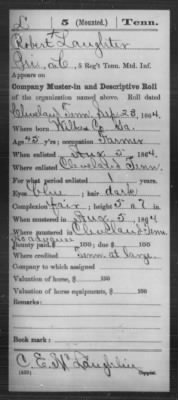 L | 5 (Mounted.) | Tenn.
Robert Laughter
Co. C, 5 Reg't Tenn. Mtd. Inf.
Appears on
Company Muster-in and Descriptive Roll
of the organization named above. Roll dated
Cleveland Tenn. Sep. 23, 1864
Where born Wilkes Co. Ga.
Age 45 y'rs; occupation Farmer
When enlisted Aug. 5, 1864
Where enlisted Cleveland Tenn.
For what period enlisted 1 years.
Eyes blue; hair dark
Complexion fair; height 5 ft. 7 in.
When mustered in Aug. 5, 1864
Where mustered in Cleveland Tenn.
Bounty paid $ 100; due $ 100
Where credited Tenn at large
Company to which assigned
Valuation of horse, $ 100
Valuation of horse equipments, $ 100
Remarks:
Book mark:
C. E. McLaughlin
Copyist.